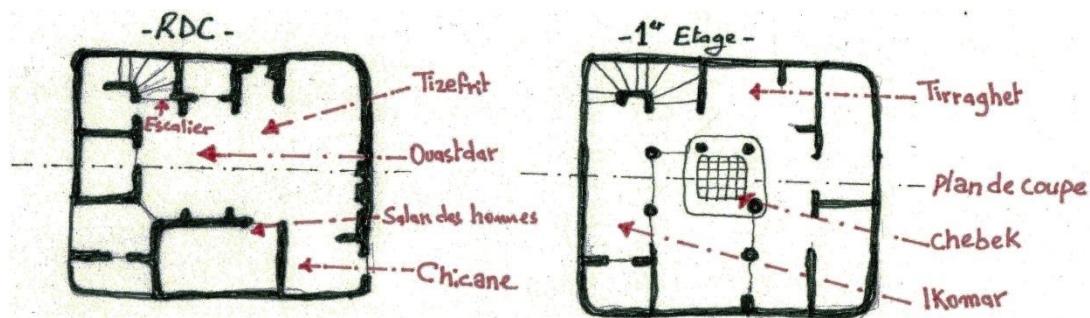 -RDC-
Tizefrit
Escalier
Ouastdar
Salon des hommes
Chicane
-1er Etage-
Tirraghet
Plan de coupe
Chebek
IKomar